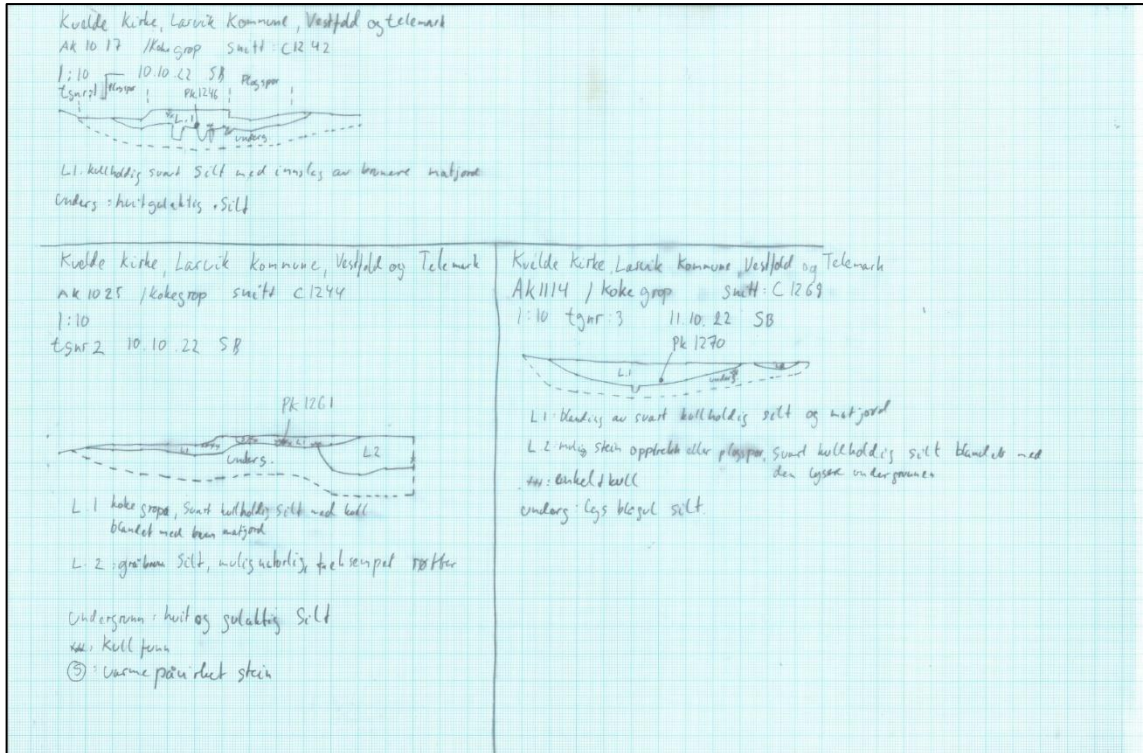 Kvelde Kirke, Larvik Kommune, Vestfold og telemark
AK 1017 /Kokegrop snitt: C1242
1:10 10.10.22 SB
tgnr:1 Plogspor PK1246 Plogspor
L.1
unders.
L1: kullholdig svart silt med innslag av brunere matjord
Unders: hvitgulaktig silt
Kvelde Kirke, Larvik Kommune, Vestfold og Telemark
AK 1025 /kokegrop snitt C1244
1:10
tgnr 2 10.10.22 SB
PK 1261
L1
L1
unders.
L2
L.1 kokegrop, svart kullholdig silt med kull
blandet med brun matjord
L. 2: gråbrun silt, mulig naturlig, røtter
Undergrunn: hvit og gulaktig silt
xxx: Kull
S: varmepåvirket stein
Kvelde Kirke, Larvik Kommune, Vestfold og Telemark
AK1114 / kokegrop snitt: C1269
1:10 tgnr:3 11.10.22 SB
PK 1270
L.1
unders
L1: blanding av svart kullholdig silt og matjord
L 2: mulig stein opptrekk eller plogspor, svart kullholdig silt blandet med
den lysere undergrunnen
xxx: enkelt kull
underg: lys blågul silt.